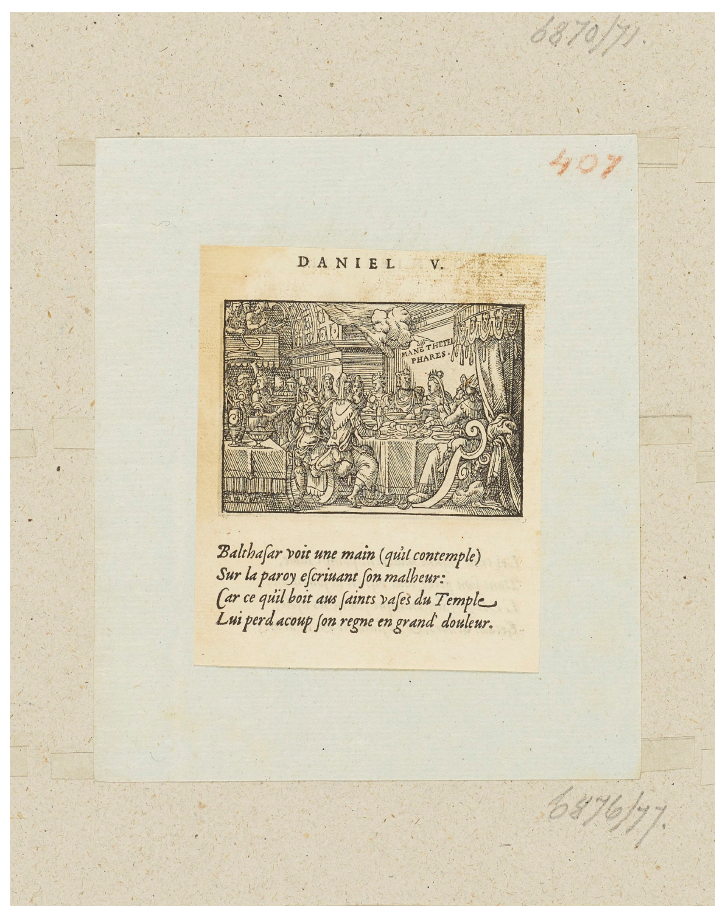 6870/71.
407
DANIEL V.
MANE THETEL
PHARES.
Balthaſar voit une main (qu'il contemple)
Sur la paroy eſcriuant ſon malheur:
Car ce qu'il boit aus ſaints vaſes du Temple
Lui perd acoup ſon regne en grand' douleur.
6876/77.